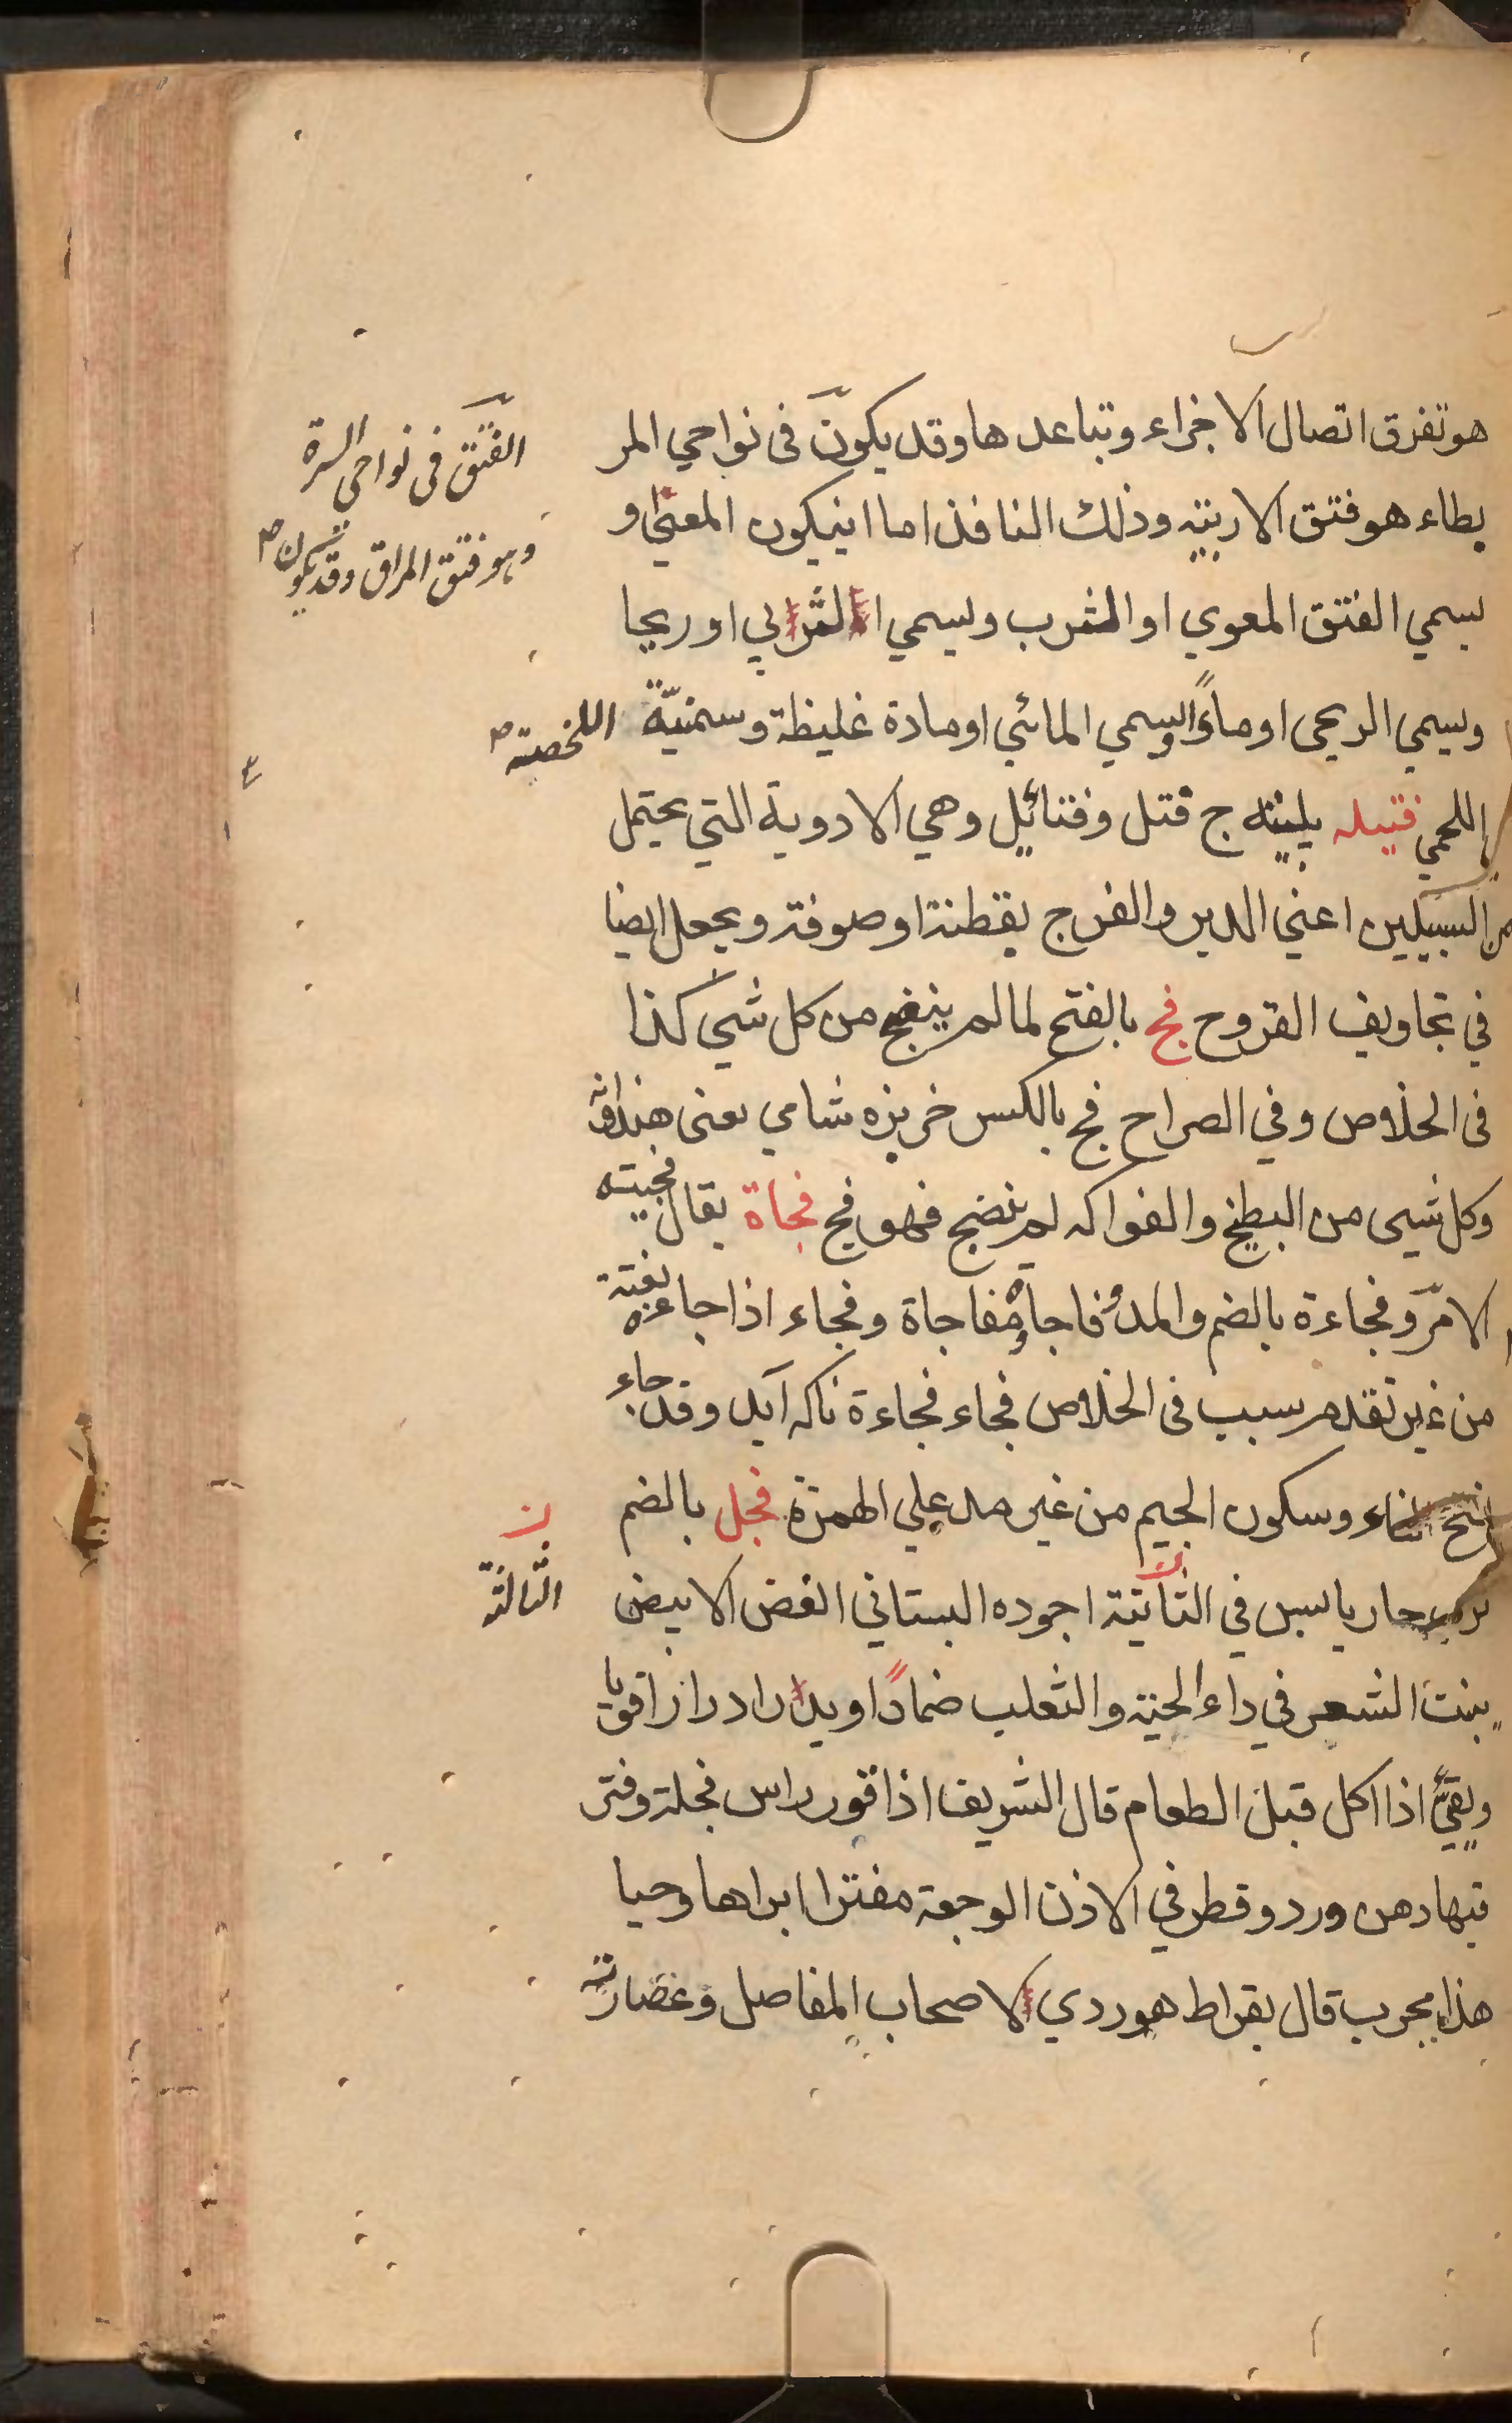 هو تفرق اتصال الاجزاء وتباعد ها وقد يكون فى نواحي المر
يطاء هو فتق الاربيّه وذلك النافذ اما انيكون المعيّ او
يسمي الفتق المعوي او الثرب ويسمي الثربي او ريحا
ويسمي الريحى او ماءً ويسمي المائي او مادة غليظة وسمنيّة
اللحمي فتيله پلپته ج فتل وفتائل وهي الادوية التي يحتمل
من السبيلين اعني الدبر والفرج بقطنة او صوفة ويجعل ايضا
في تجاويف القروح فج بالفتح لما لم ينضج من كل شي كذا
فى الخلاص وفي الصراح فج بالكسر خربزه شامي يعنى هندوانه
وكل شيى من البطيخ والفواكه لم ينضج فهو فج فجاة يقال فجيته
الامر وفجاءة بالضم والمد وفاجأه مفاجاة وفجاء اذا جاءه بغتة
من غير تقدم سبب فى الخلاص فجاء فجاءة ناكه آيد وقد جاء
وسكون الجيم من غير مد علي الهمزة فجل بالضم
ترب حار يابس في الثانية اجوده البستاني الغض الابيض
ينبت الشعر في داء الحية والثعلب ضمادًا ويدر ادرارا قويا
ويقيّ اذا اكل قبل الطعام قال الشريف اذا قور راس فجلة وفتر
فيها دهن ورد وقطر في الاذن الوجعة مفترا ابراها وحيا
هذا مجرب قال بقراط هو ردي لاصحاب المفاصل وعصارته
الفتق فى نواحى السرة
وهو فتق المراق وقد يكون
اللخصية
ن
الثالثة